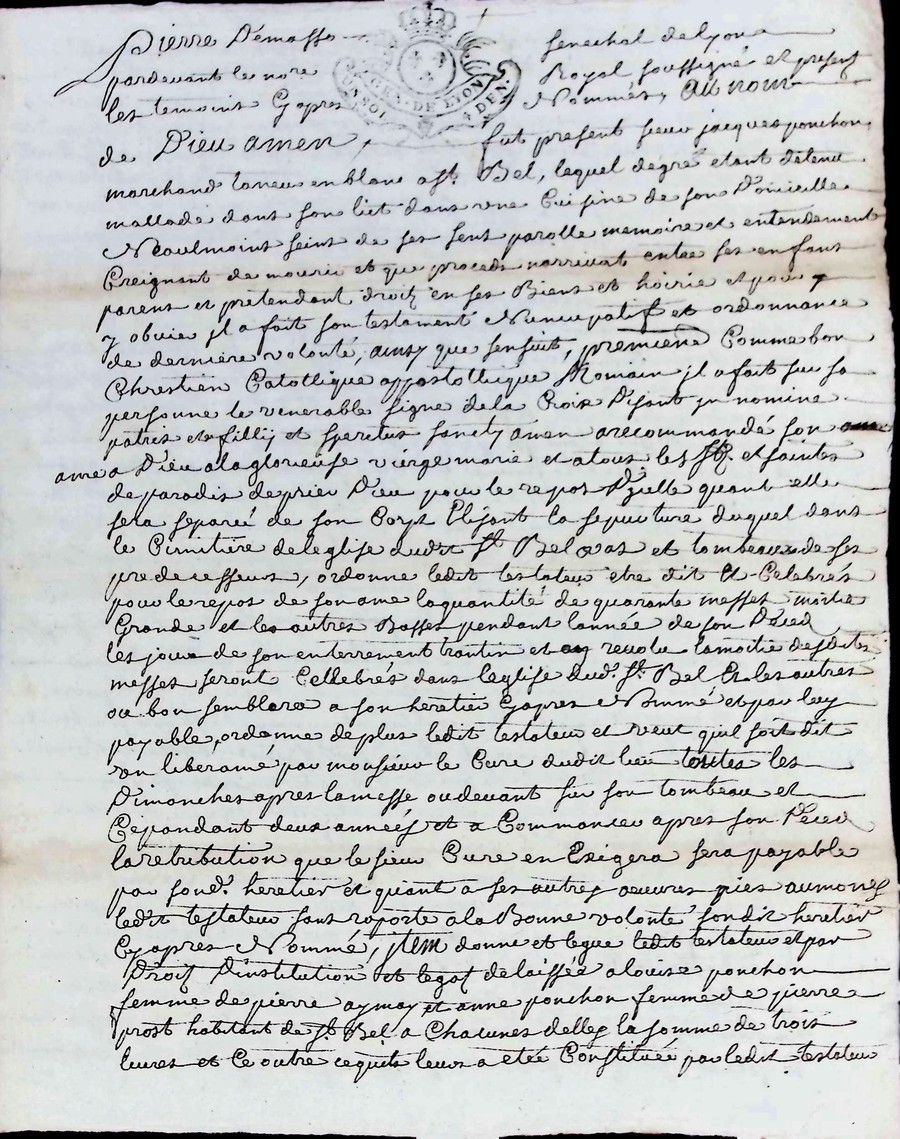 Pierre Démasso senechal de lyon
pardevant le nore Royal soussigné et present
les temoins Cyapres Nommés, au nom
GEN. DE LYON
de Dieu amen, fut present sieur jacques ponchon
marchand taneur en blanc a St. Bel, lequel degré etant detenu
mallade dans son liet dans une Cuisine de son Domicille
Neaulmoins seins de ses sens parolle memoire et entendement
Creignant de mourir et que proceds narrivat entre ses enfans
parens et prétendant droit en ses Biens et hoirie et pour
y obvier jl a fait son testament Nuncupatif et ordonnance
de derniere volonté, ainsy que sensuit, premiere Comme bon
Chrestien Catollique appostollique Romain jl a fait sur sa
personne le venerable signe de la Croix Disant jn nomine
patris et fillij et speritus sancty amen a recommandé son
ame a Dieu a la glorieuse vierge marie et a tous les Sts. et saintes
de paradis de prier Dieu pour le repos Dycelle quant elle
sera separeé de son Corps Elisant la sepulture duquel dans
le Cimitière de leglise dudit St. Bel vas et tombeaux de ses
predecesseurs, ordonne ledit testateur etre dit et Celebrés
pour le repos de son ame la quantité de quarante messes
Grande et les autres Basses pendant lannée de son Déced
les jours de son enterrement trantin et an revolu la moitie desdites
messes seront Cellebrés dans leglise dud. St. Bel Et les autres
ou bon semblera a son heretier Cyapres Nommé et par luy
payable, ordonne de plus ledit testateur et veut quil soit dit
un liberamé par monsieur le Cure dudit lieu toutes les
Dimanches apres la messe ou devant sur son tombeau et
Ce pendant deux années et a Commancer apres son Déced
la retribution que le sieur Cure en Exigera sera payable
par sond. heretier et quant a ses autres oeuvres pies aumones
ledit testateur sans raporte a la Bonne volonté sondit heretier
Cyapres Nommé, jtem donne et legue ledit testateur et par
Droit Dinstitution et legat delaissée a louise ponchon
femme de pierre aymay et anne ponchon femme de pierre
prost habitant de St. Bel a Chacunes delles la somme de trois
livres et Ce outre cequi leurs a etée Constituée par ledit testateur